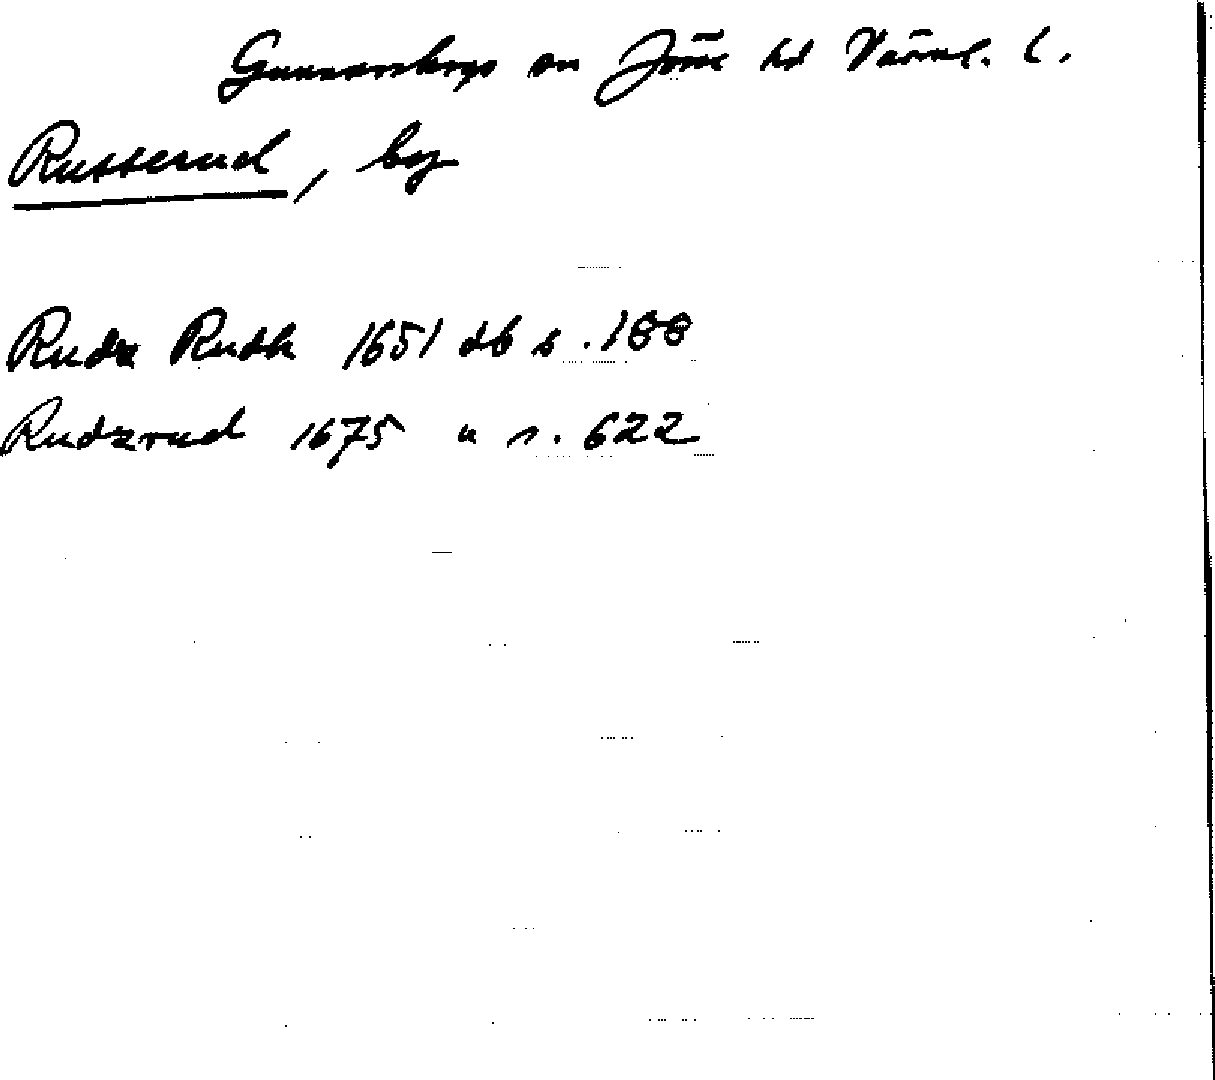 Gunnarskogs sn Jösse hd Värml. l.
Rutserud, by
Rudz Rudh 1651 db s. 188
Rudzrud 1675 " s. 622